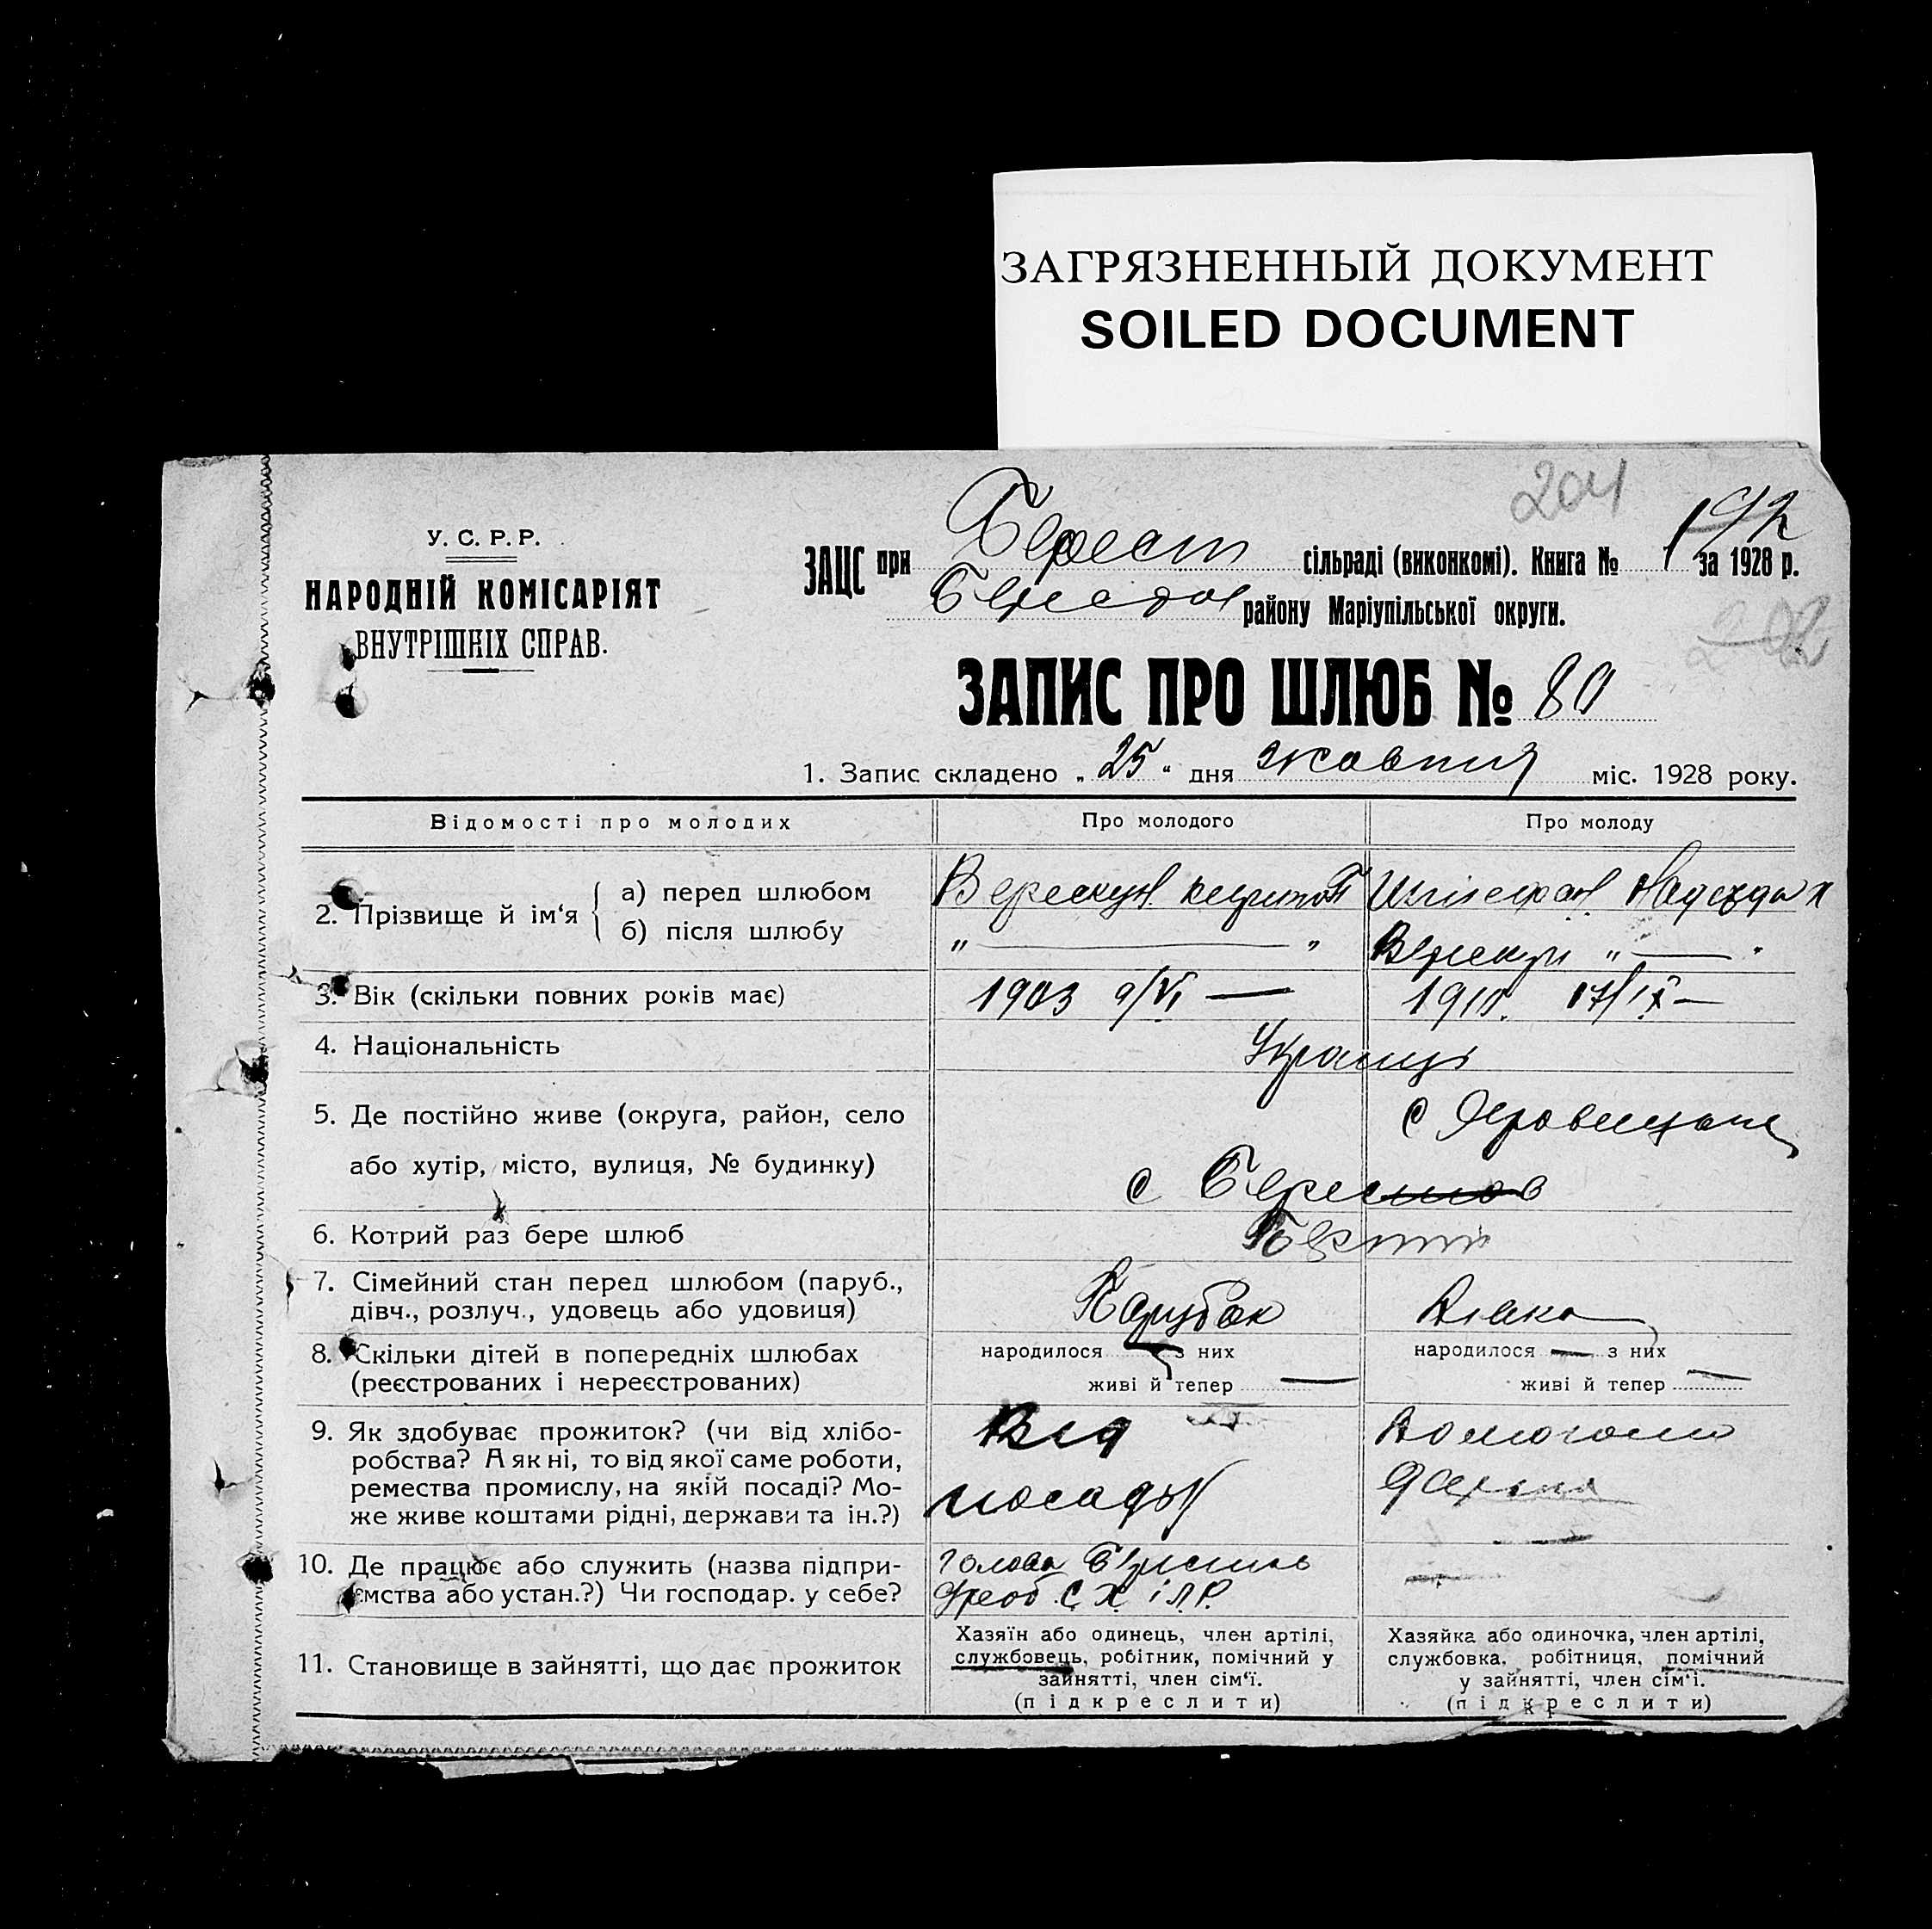 ЗАГРЯЗНЕННЫЙ ДОКУМЕНТ
SOILED DOCUMENT
204
192
У. С. Р. Р.
НАРОДНІЙ КОМІСАРІЯТ
ВНУТРІШНІХ СПРАВ.
ЗАЦС при Берест сільраді (виконкомі). Книга № 1 за 1928 р.
Берестов району Маріупільської округи.
202
ЗАПИС ПРО ШЛЮБ № 80
1. Запис складено „ 25 “ дня жовтня міс. 1928 року.
Відомості про молодих Про молодого Про молоду
2. Прізвище й ім‘я а) перед шлюбом Верескун
б) після шлюбу " — " Верескун " — "
3. Вік (скільки повних років має) 1903 9/VI — 1910. 17/IX —
4. Національність Українці
5. Де постійно живе (округа, район, село
або хутір, місто, вулиця, № будинку) с Берестов
6. Котрий раз бере шлюб
7. Сімейний стан перед шлюбом (паруб.,
дівч., розлуч., удовець або удовиця) Парубок Дівка
8. Скільки дітей в попередніх шлюбах
(реєстрованих і нереєстрованих)
народилося — з них
живі й тепер —
народилося — з них
живі й тепер —
9. Як здобуває прожиток? (чи від хлібо-
робства? А як ні, то від якої саме роботи,
ремества промислу, на якій посаді? Мо-
же живе коштами рідні, держави та ін.?)
Від
посади
10. Де працює або служить (назва підпри-
ємства або устан.?) Чи господар. у себе?
голова
С. Х. і Л. Р.
11. Становище в зайнятті, що дає прожиток
Хазяїн або одинець, член артілі,
службовець, робітник, помічний у
зайнятті, член сім‘ї.
(підкреслити)
Хазяйка або одиночка, член артілі,
службовка, робітниця, помічний
у зайнятті, член сім‘ї.
(підкреслити)